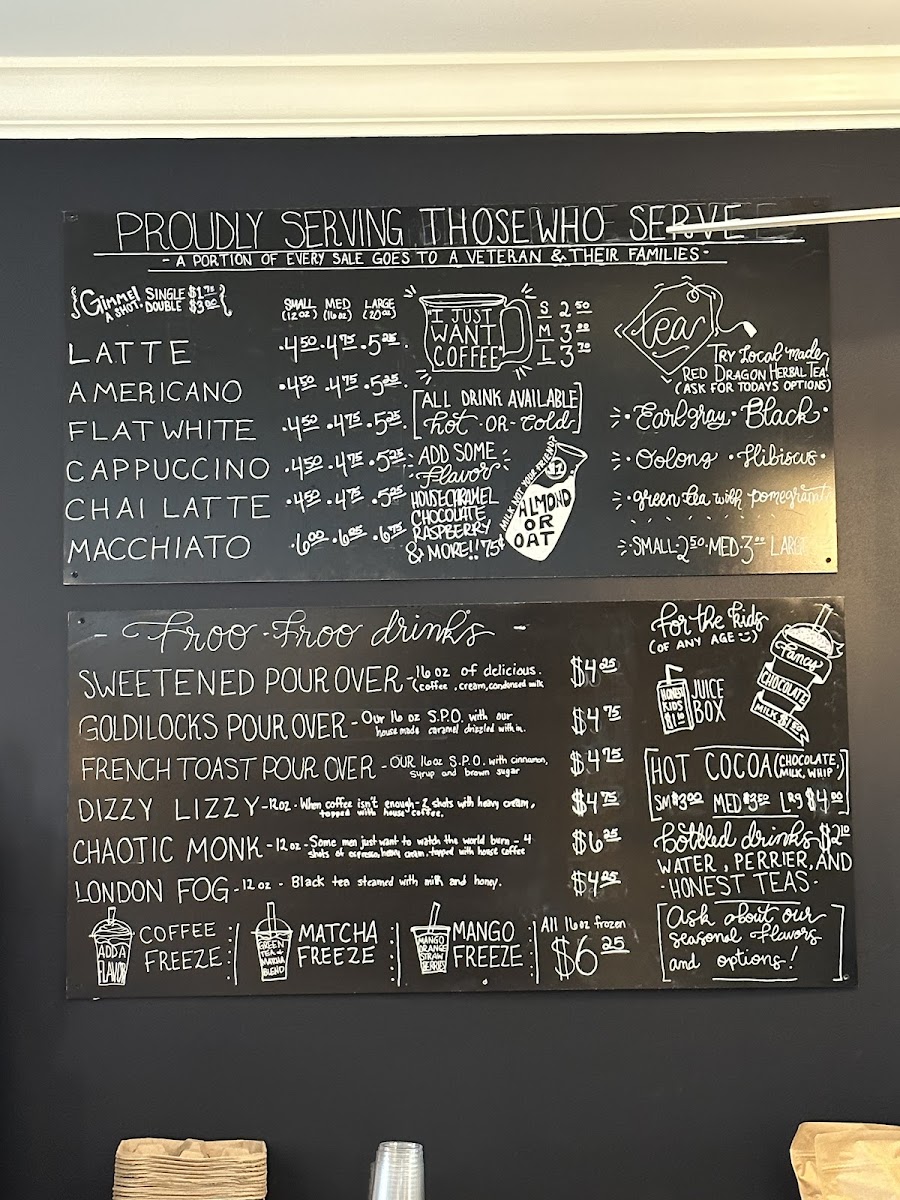 PROUDLY SERVING THOSE WHO SERVE
- A PORTION OF EVERY SALE GOES TO A VETERAN & THEIR FAMILIES -
GIMMEL A SHOT. SINGLE $1.75
DOUBLE $3.00
SMALL (12 oz) MED (16 oz) LARGE (20 oz)
LATTE .4.50 .4.75 .5.25
AMERICANO .4.50 .4.75 .5.25
FLAT WHITE .4.50 .4.75 .5.25
CAPPUCCINO .4.50 .4.75 .5.25
CHAI LATTE .4.50 .4.75 .5.25
MACCHIATO .6.00 .6.25 .6.75
"I JUST
WANT
COFFEE"
S 2.50
M 3.00
L 3.70
[ALL DRINK AVAILABLE
hot -OR- Cold]
ADD SOME
Flavor
HOUSE CARAMEL
CHOCOLATE
RASPBERRY
& MORE!! 75¢
MILK NOT YOUR FRIEND?
ALMOND
OR
OAT
tea
TRY Local made
RED DRAGON HERBAL TEA!
(ASK FOR TODAYS OPTIONS)
Earl gray • Black
Oolong • Hibiscus
green tea with pomegrant
SMALL 2.50 • MED 3.00 LARGE
- Froo-Froo drinks -
SWEETENED POUR OVER - 16 oz of delicious.
(coffee, cream, condensed milk $4.25
GOLDILOCKS POUR OVER - Our 16 oz S.P.O. with our
house made caramel drizzled with in. $4.75
FRENCH TOAST POUR OVER - OUR 16 oz S.P.O. with cinnamon,
syrup and brown sugar $4.75
DIZZY LIZZY - 12 oz. - When coffee isn't enough - 2 shots with heavy cream,
topped with house coffee. $4.75
CHAOTIC MONK - 12 oz - Some men just want to watch the world burn - 4
shots of espresso, heavy cream, topped with house coffee $6.25
LONDON FOG - 12 oz - Black tea steamed with milk and honey. $4.25
ADD A
FLAVOR
COFFEE
FREEZE
GREEN
TEA
MATCHA
BLEND
MATCHA
FREEZE
MANGO
ORANGE
STRAW
BERRIES
MANGO
FREEZE
All 16oz frozen
$6.25
for the kids
(OF ANY AGE)
HONEST
KIDS
$1.50
JUICE
BOX
Fancy
CHOCOLATE
MILK
HOT COCOA (CHOCOLATE,
MILK, WHIP,)
SM $3.00 MED $3.50 Lrg $4.00
bottled drinks $2.10
WATER, PERRIER, AND
- HONEST TEAS -
[Ask about our
seasonal flavors
and options!]